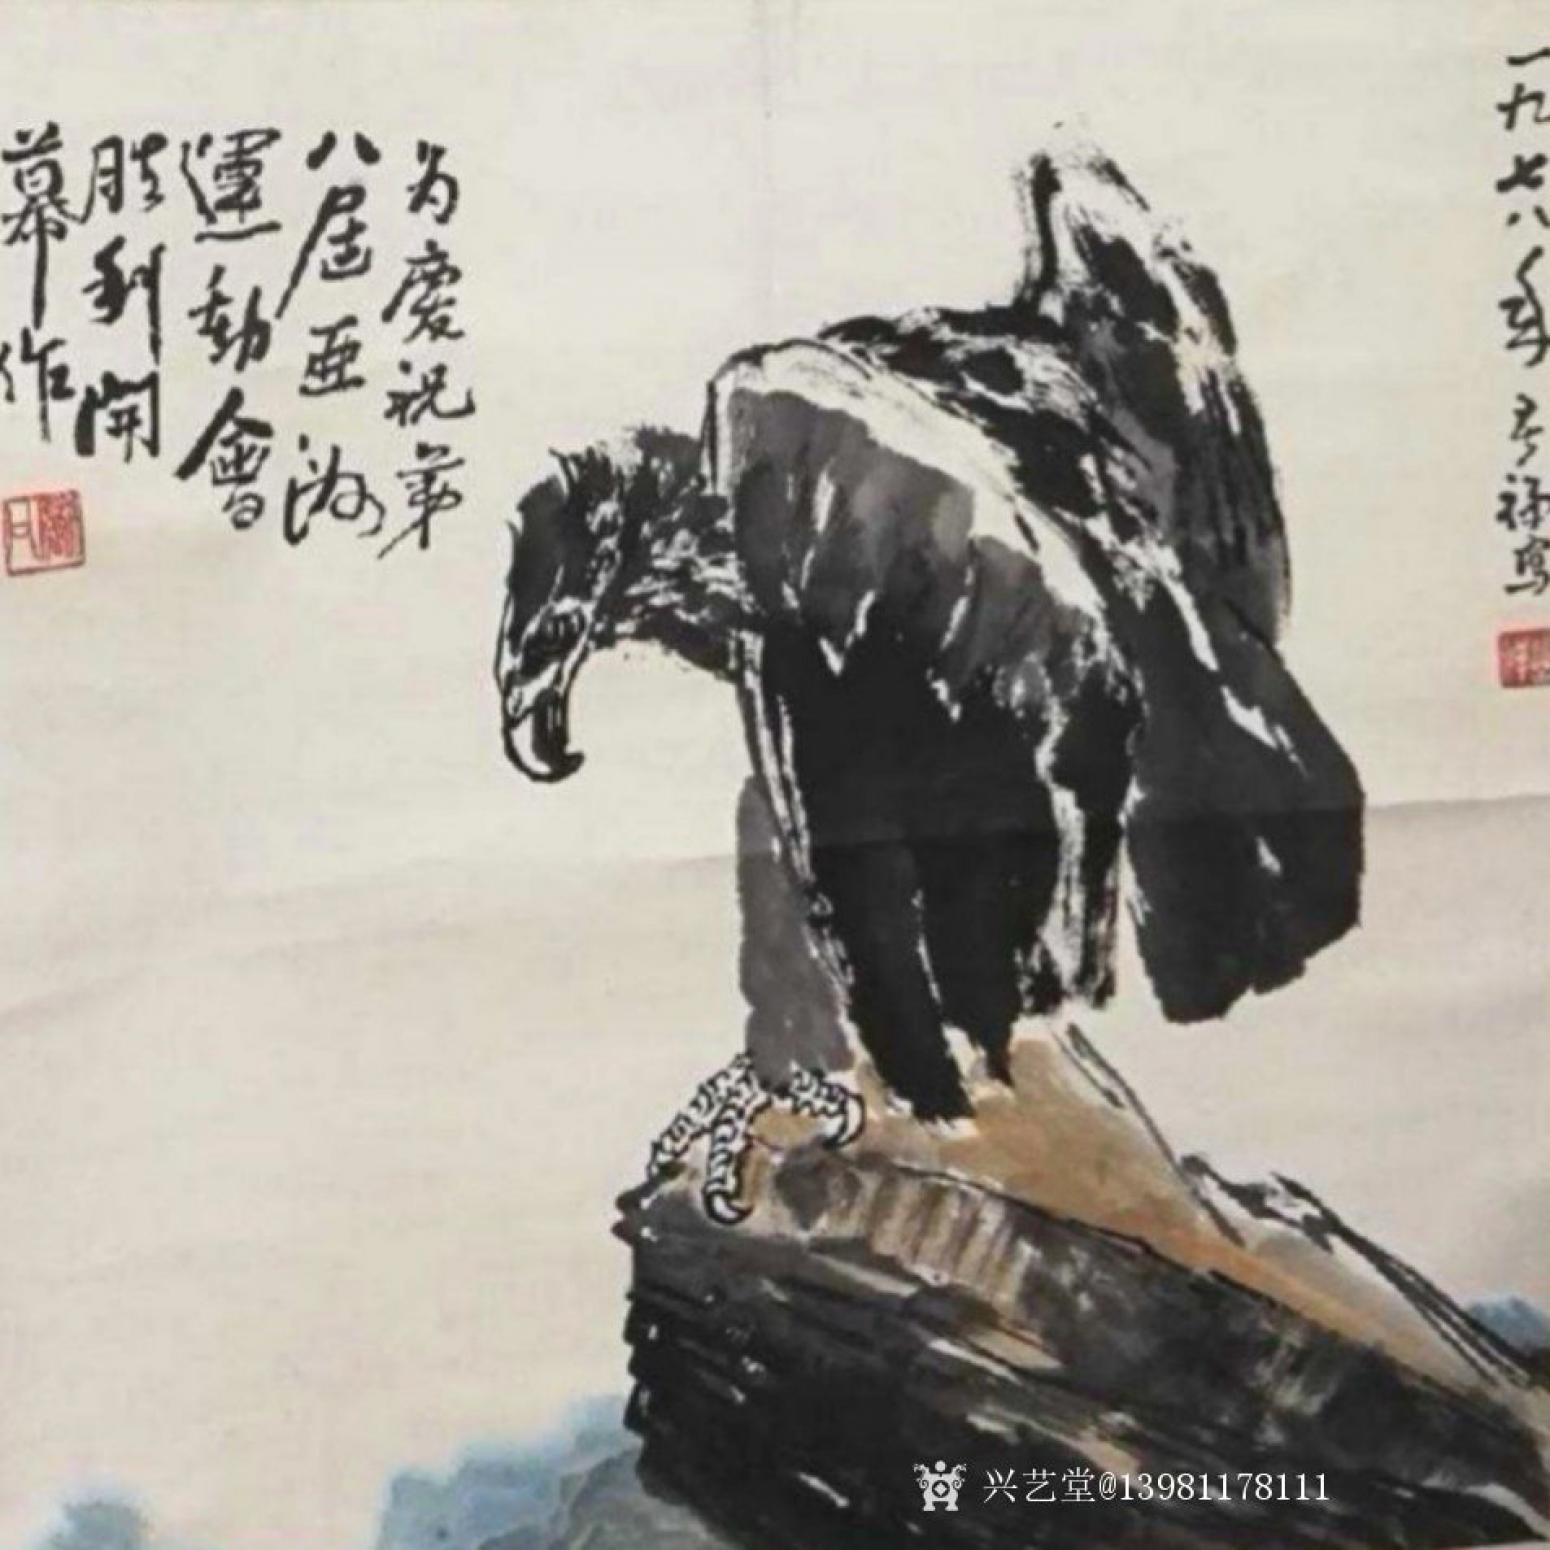 一九七八年
禄寫
为慶祝第
八届亚洲
運動會
胜利開
幕作
兴艺堂@13981178111